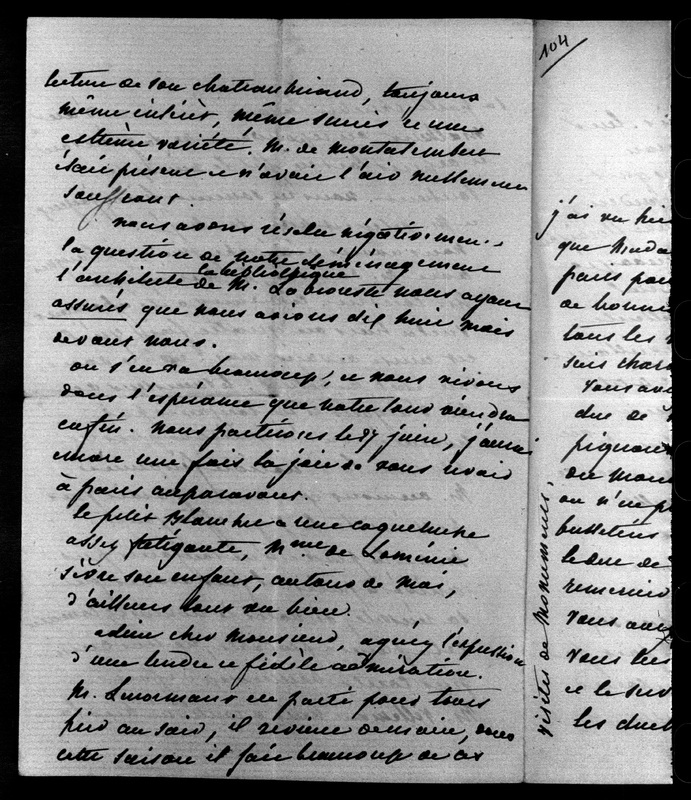 104
lecture de son chateaubriand, toujours
même intérêt, même succès et une
extrème variété. M. de montalembert
était présent et n'avait l'air nullement
souffrant.
nous avons résolu négativement
la question de notre déménagement
la bibliothèque
l'architecte de M. Labrouste nous ayant
assurés que nous avions dix huit mois
devant nous.
on s'en va beaucoup, et nous vivons
dans l'espérance que notre tour viendra
enfin. nous partirons le 27 juin, j'aurai
encore une fois la joie de vous revoir
à paris auparavant.
le petit Blanche a une coqueluche
assez fatigante, Mme de Loménie
sèvre son enfant, autour de moi,
d'ailleurs tout va bien.
adieu cher Monsieur, agréez l'expression
d'une tendre et fidèle admiration.
M. Lenormant est parti pour tours
hier au soir, il revient demain, dans
cette saison il fait beaucoup de ces
visites de monuments.
j'ai vu hie
que Mada
paris pou
de bonne
tous les
suis char
vous ave
duc de
du mon
on n'en p
bulletins
le duc de
remercie
vous
vous
et le
les